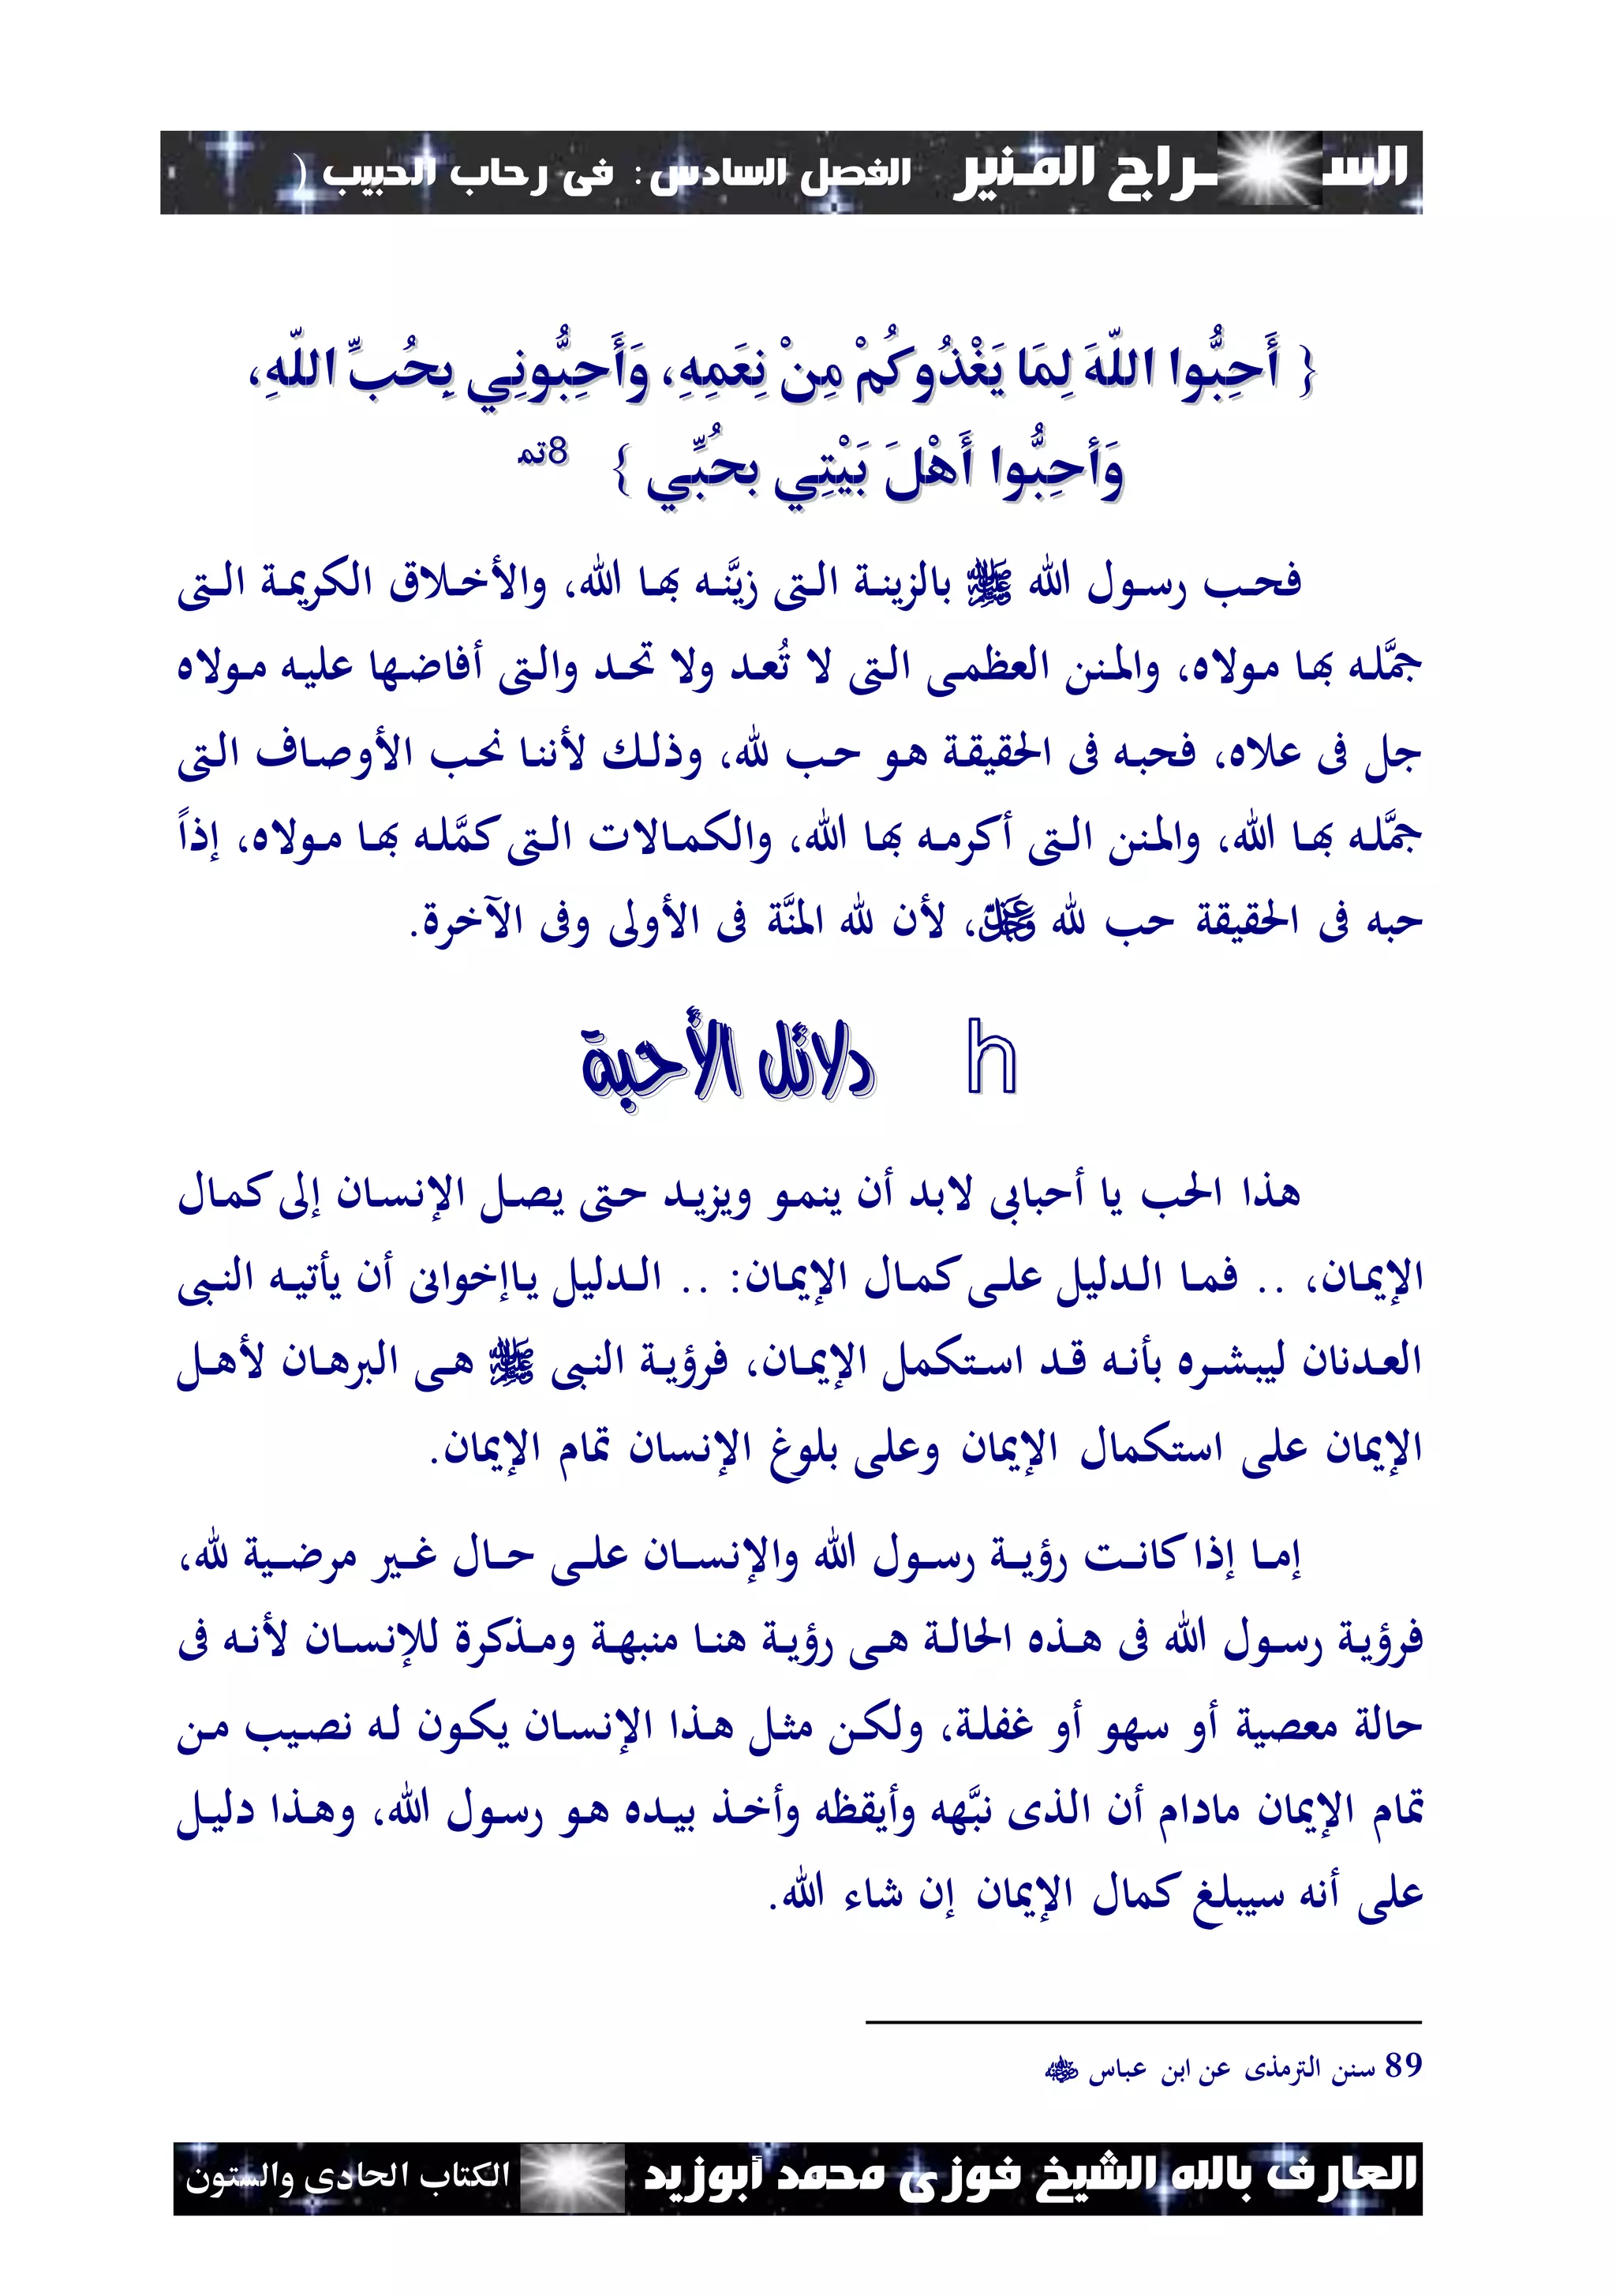 الســراج المـنير الفصل السادس: فى رحاب الحبيب (
{ أَحِبُّوا اللَّهَ لِمَا يَغْذُوكُمْ مِنْ نِعَمِهِ، وَأَحِبُّونِي بِحُبِّ اللَّهِ،
وَأحِبُّوا أَهْلَ بَيْتِي بحُبِّي } 8تم
فحب رسول الله ﷺ بالزينة التى زيَّنه بها الله، والأخلاق الكريمة التى
جمَّله بها مولاه، والمنن العظمى التى لا تُعد ولا تحد والتى أفاضها عليه مولاه
جل فى علاه، فحبه فى الحقيقة هو حب لله، وذلك لأننا نحب الأوصاف التى
جمَّله بها الله، والمنن التى أكرمه بها الله، والكمالات التى كمَّله بها مولاه، إذاً
حبه فى الحقيقة حب لله ﷻ، لأن لله المنَّة فى الأولى وفى الآخرة.
h دلائل الأحبة
هذا الحب يا أحبابى لابد أن ينمو ويزيد حتى يصل الإنسان إلى كمال
الإيمان، .. فما الدليل على كمال الإيمان: .. الدليل ياإخوانى أن يأتيه النبى
العدنان ليبشره بأنه قد استكمل الإيمان، فرؤية النبى ﷺ هى البرهان لأهل
الإيمان على استكمال الإيمان وعلى بلوغ الإنسان تمام الإيمان.
إما إذا كانت رؤية رسول الله والإنسان على حال غير مرضية لله،
فرؤية رسول الله فى هذه الحالة هى رؤية هنا منبهة ومذكرة للإنسان لأنه فى
حالة معصية أو سهو أو غفلة، ولكن مثل هذا الإنسان يكون له نصيب من
تمام الإيمان مادام أن الذى نبَّهه وأيقظه وأخذ بيده هو رسول الله، وهذا دليل
على أنه سيبلغ كمال الإيمان إن شاء الله.
89 سنن الترمذى عن ابن عباس
العارف بالله الشيخ فوزى محمد أبوزيد الكتاب الحادى والستون